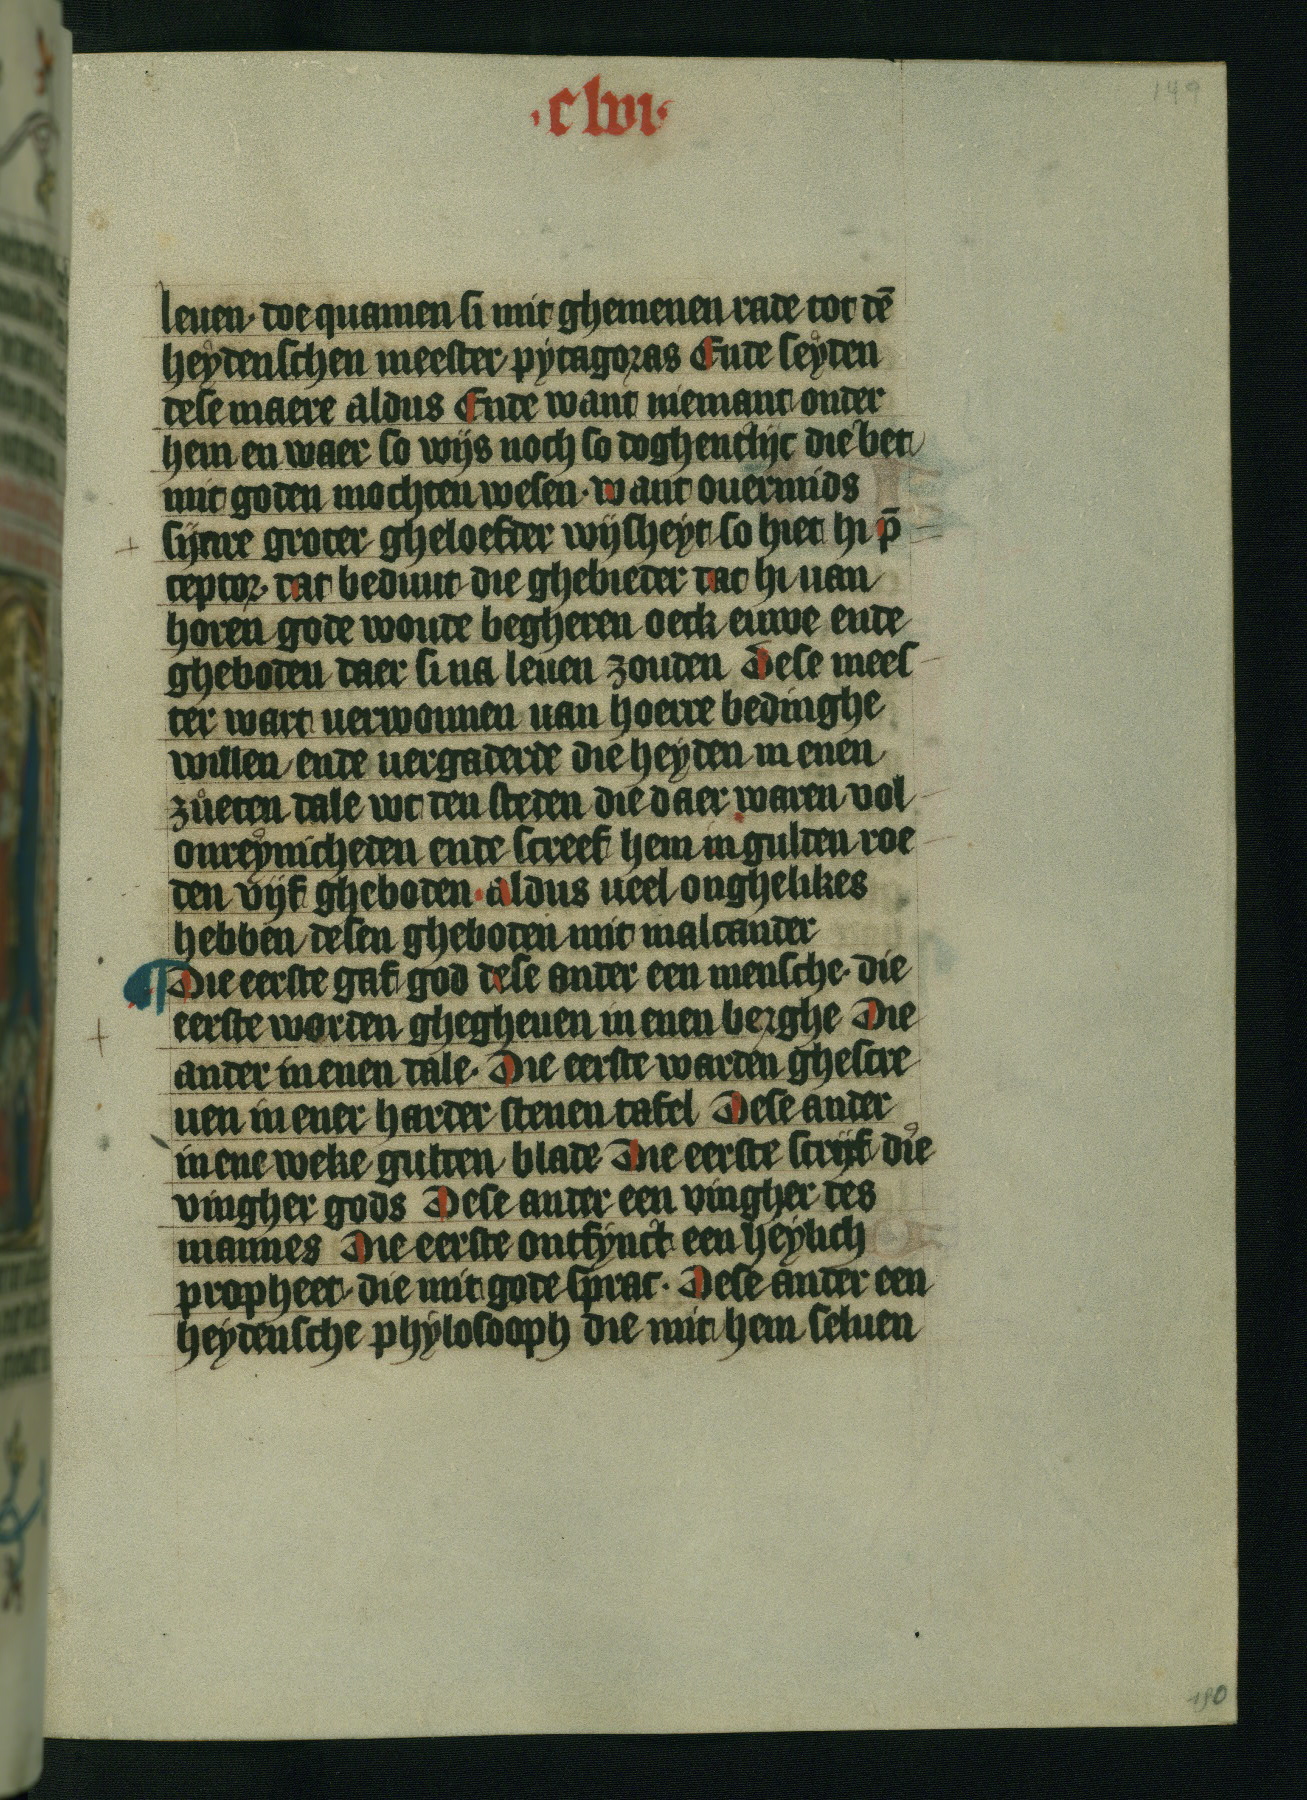 149
·clvi·
leuen· doe quamen si mit ghemenen rade tot dē
heydenschen meester pytagoras Ende seyden
dese maere aldus Ende want niemant onder
hem en waer so wijs noch so doghentlijc die bet
mit goden mochten wesen· want ouermids
sijnre groter gheloefder wijsheyt so hiet hi p̄
ceptor· dat beduut die ghebieder dat hi uan
horen gode woude begheren oeck euwe ende
gheboden daer si na leuen zouden Dese mees
ter wart uerwonnen uan hoerre bedinghe
willen ende uergaderde die heyden in enen
zueten dale wt den steden die daer waren vol
onreynicheden ende screef hem in gulden roe
den vijf gheboden· aldus ueel onghelikes
hebben desen gheboden mit malcander
¶ Die eerste gaf god dese ander een mensche· die
eerste worden ghegheuen in enen berghe Die
ander in enen dale· Die eerste warden ghescre
uen in ener harder stenen tafel Dese ander
in ene weke gulden blade Die eerste scrijf die
vingher gods Dese ander een vingher des
mannes Die eerste ontfynct een heylich
propheet die mit gode sprac· Dese ander een
heydensche phylosooph die mit hem seluen
190